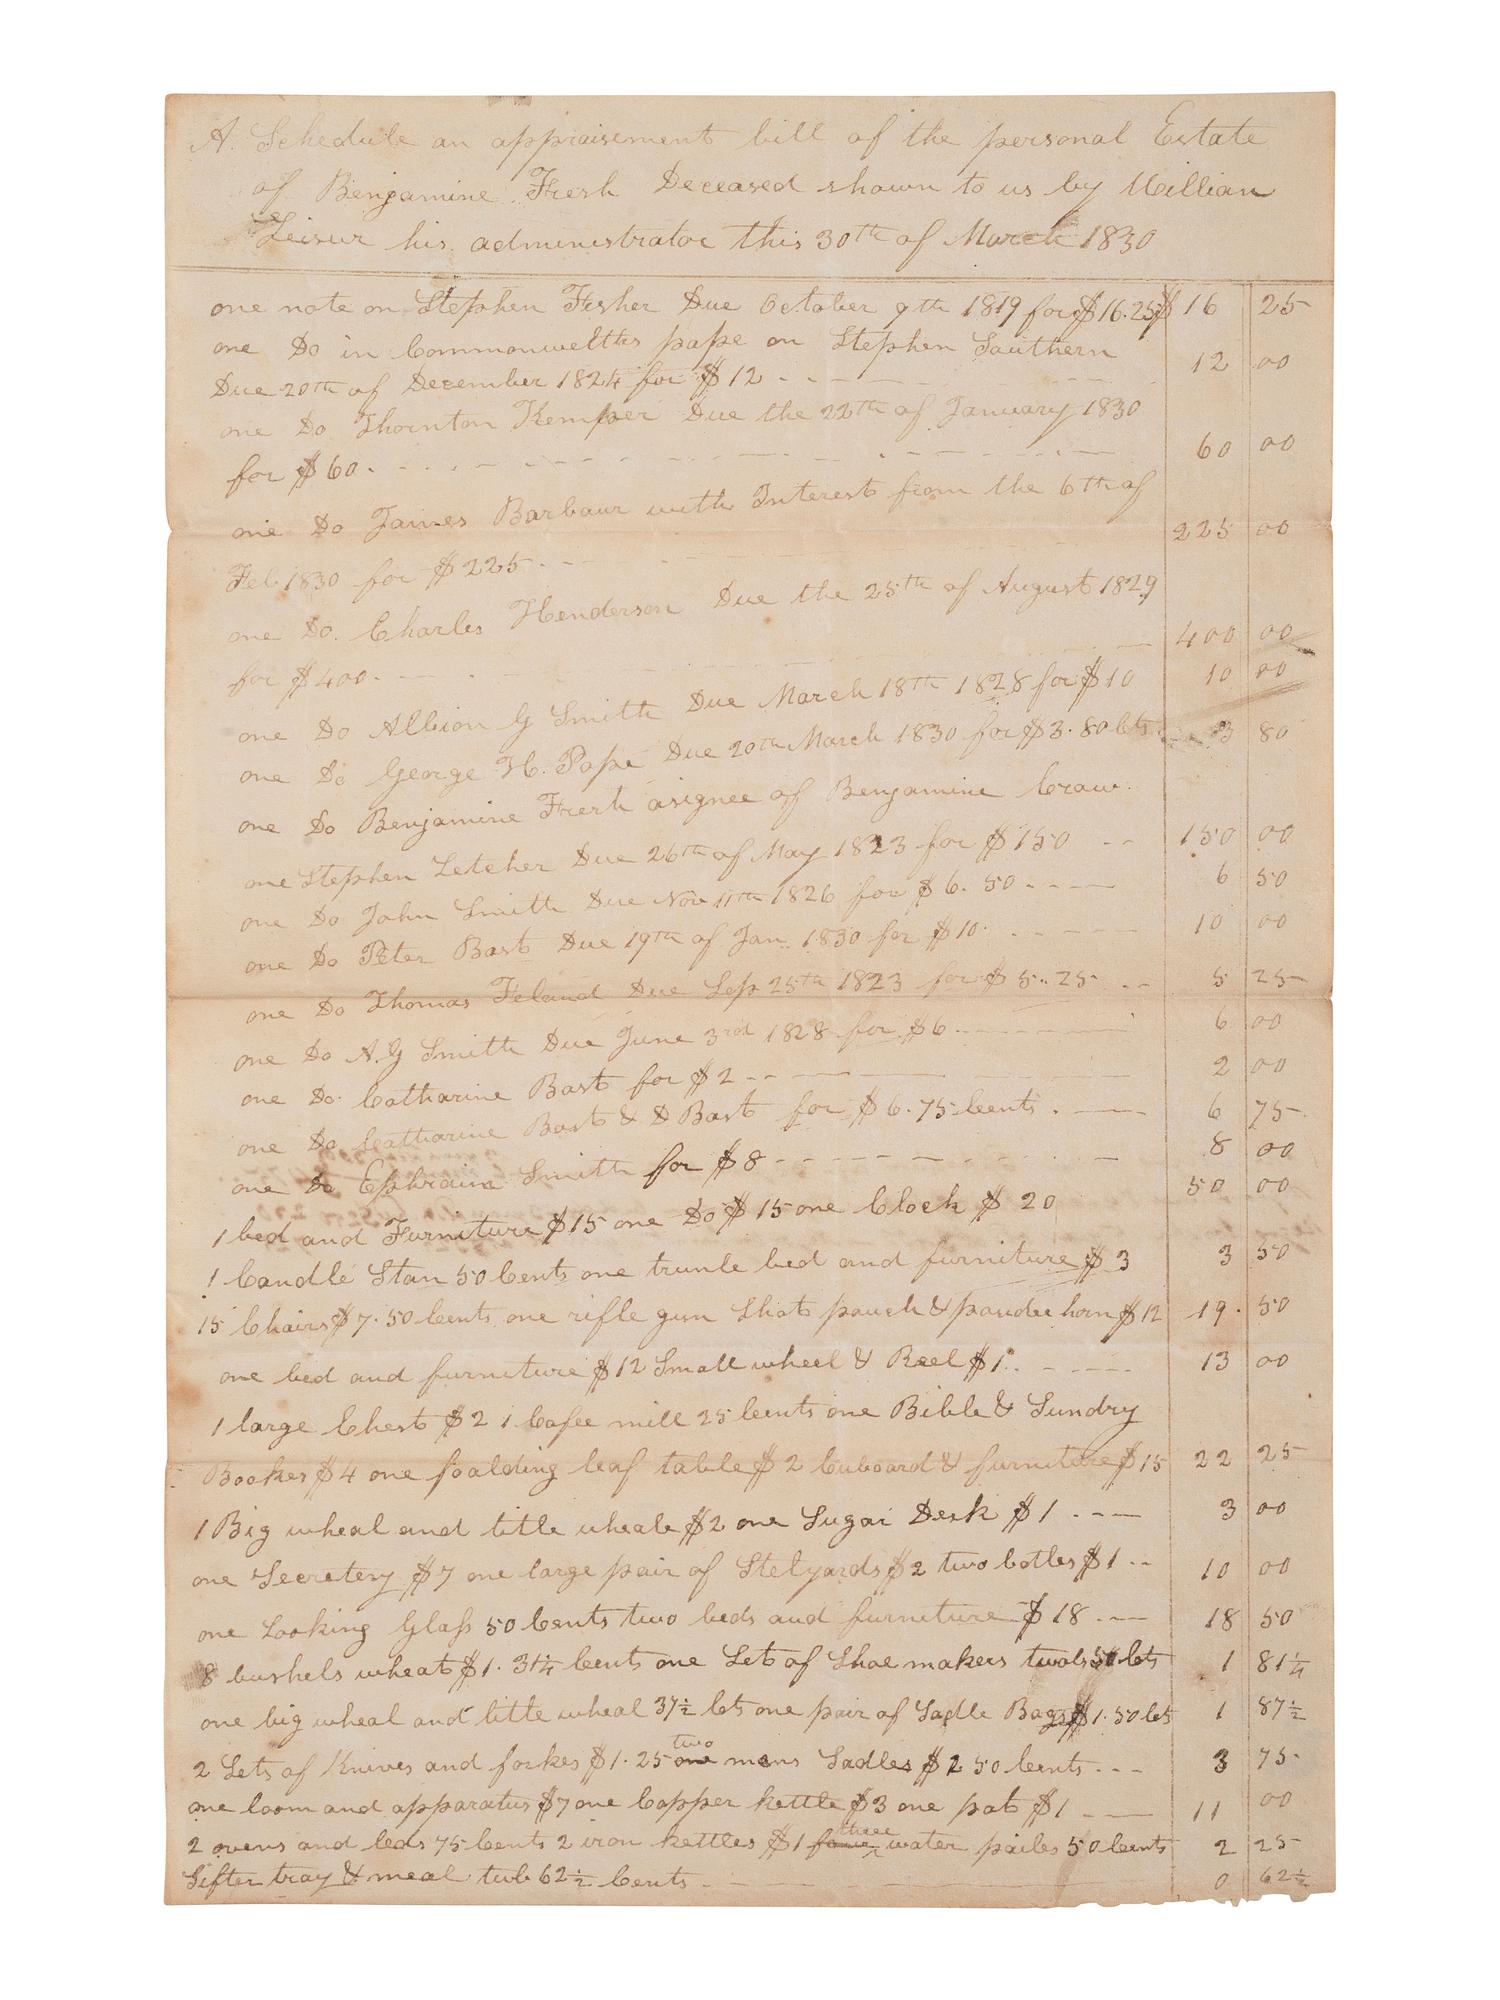 A. Schedule an appraisement bill of the personal Estate
of Benjamine Fresh Deceased shown to us by William
Leisur his administrator this 30th of March 1830
one note on Stephen Fisher Due October 9th 1819 for $16.25 $ 16 25
one Do in Commonwelths pape on Stephen Southern
Due 20th of December 1824 for $12 12 00
one Do Thornton Kemper Due the 22th of January 1830
for $60. 60 00
one Do James Barbaur with Interest from the 6th of
Feb 1830 for $225 225 00
one Do. Charles Henderson Due the 25th of August 1829
for $400. 400 00
one Do Albion G Smith Due March 18th 1828 for $10 10 00
one Do George H. Pope Due 20th March 1830 for $3.80 Cts 3 80
one Do Benjamine Fresh asignee of Benjamine Craw.
one Stephen Letcher Due 26th of May 1823 for $150 150 00
one Do John Smith Due Nov 11th 1826 for $6.50 6 50
one Do Peter Bast Due 19th of Jan 1830 for $10 10 00
one Do Thomas Feland Due Sep 25th 1823 for $5.25 5 25
one Do A.G Smith Due June 3rd 1828 for $6 6 00
one Do. Catharine Bast for $2 2 00
one Do Catharine Bast & D Bast for $6.75 Cents 6 75
one Do Ephraim Smith for $8 8 00
1 bed and Furniture $15 one Do $15 one Clock $20 50 00
1 Candle Stan 50 Cents one trunle bed and furniture $3 3 50
15 Chairs $7.50 Cents one rifle gun Shot pouch & pouder horn $12 19. 50
one bed and furniture $12 Small wheel & Reel $1. 13 00
1 large Chest $2 1 Cafee mill 25 Cents one Bible & Sundry
Bookes $4 one foalding leaf table $2 Cuboard & furniture $15 22 25
1 Big wheal and little wheale $2 one Sugar Desk $1 3 00
one Secretery $7 one large pair of Stelyards $2 two botles $1 10 00
one Looking Glass 50 Cents two beds and furniture $18 18 50
8 bushels wheat $1.31¼ Cents one Set of Shoe makers twols 50 Cts 1 81¼
one big wheal and little wheal 37½ Cts one pair of Sadle Bags $1.50 Cts 1 87½
2 Sets of Knives and forkes $1.25 one two mens Sadles $2 50 Cents 3 75
one loom and apparatus $7 one Copper kettle $3 one pot $1 11 00
2 ovens and leds 75 Cents 2 iron kettles $1 four three water pailes 50 Cents 2 25
Sifter tray & meal tub 62½ Cents 0 62½